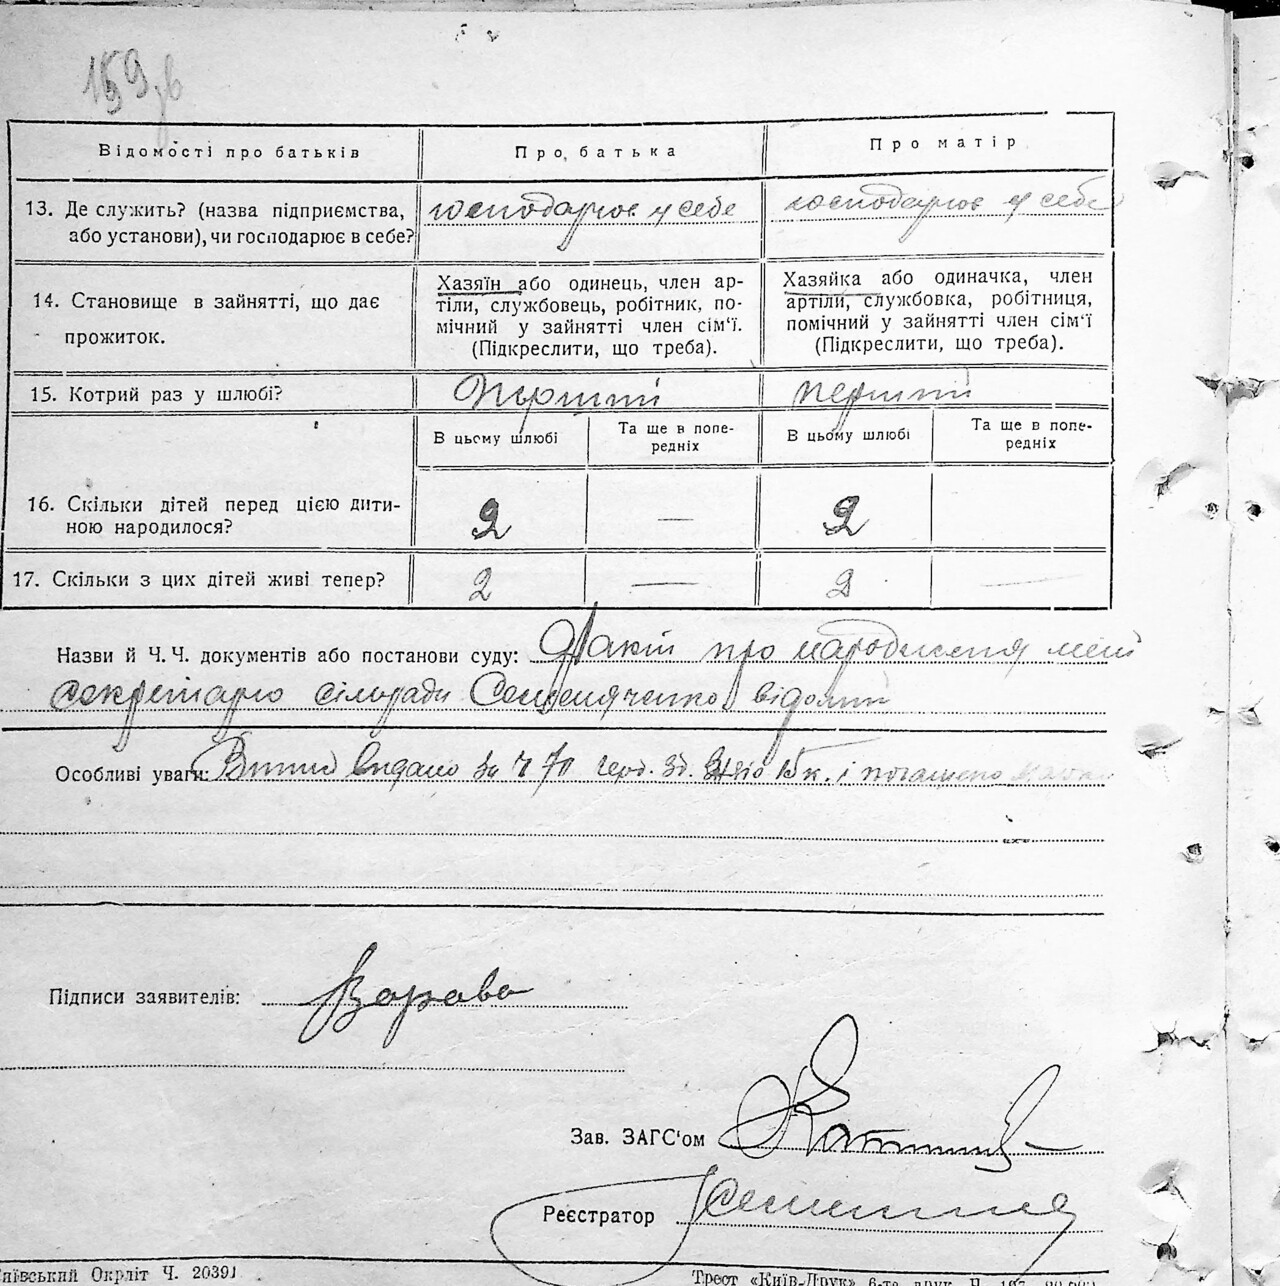 159 зв
Відомості про батьків
Про батька
Про матір
13. Де служить? (назва підприємства,
або установи), чи господарює в себе?
господарює у себе
господарює у себе
14. Становище в зайнятті, що дає
прожиток.
Хазяїн або одинець, член ар-
тіли, службовець, робітник, по-
мічний у зайнятті член сім'ї.
(Підкреслити, що треба).
Хазяйка або одиначка, член
артіли, службовка, робітниця,
помічний у зайнятті член сім'ї
(Підкреслити, що треба).
15. Котрий раз у шлюбі?
перший
перший
В цьому шлюбі
Та ще в попе-
редніх
В цьому шлюбі
Та ще в попе-
редніх
16. Скільки дітей перед цією дити-
ною народилося?
2
—
2
—
17. Скільки з цих дітей живі тепер?
2
—
2
—
Назви й Ч. Ч. документів або постанови суду: Факт про народження мені
секретарю сілради відомий
Особливі уваги: Витяг видано за ч 70 герб. зб. 15 к. і погашено
Підписи заявителів: Варава
Зав. ЗАГС'ом
Реєстратор
Київський Окрліт Ч. 20391
Трест «Київ-Друк» 6-та друк. Ч.